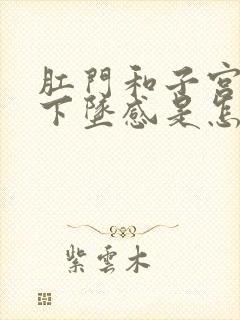 肛門和子宮
下墜感是怎
紫雲木